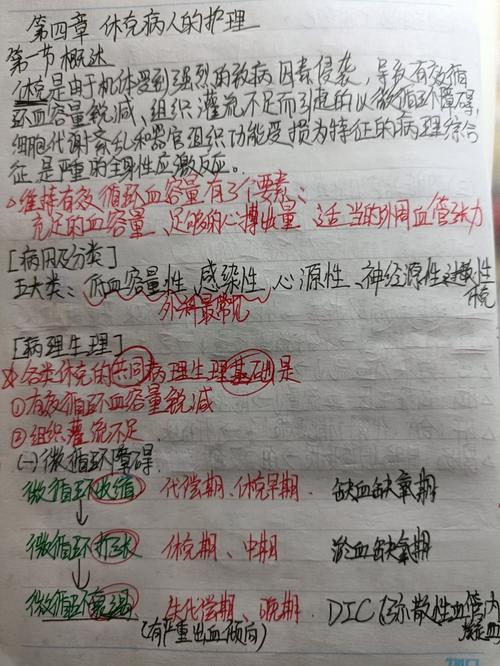 第四章 休克病人的护理
第一节 概述
休克是由于机体受到强烈的致病因素侵袭,导致有效循
环血容量锐减、组织灌流不足而引起的以微循环障碍,
细胞代谢紊乱和器官组织功能受损为特征的病理综合
征,是严重的全身性应激反应。
△维持有效循环血容量有3个要素:
充足的血容量、足够的心搏出量、适当的外周血管张力
[病因及分类]
五大类:低血容量性、感染性、心源性、神经源性、过敏性
休克
外科最常见
[病理生理]
各类休克的共同病理生理基础是
①有效循环血容量锐减
②组织灌流不足
(一)微循环障碍
微循环收缩 代偿期、休克早期. 缺血缺氧期
↓
微循环扩张 休克期、中期 淤血缺氧期
↓
微循环衰竭 失代偿期、晚期. DIC(弥散性血管内
凝血
(有严重出血倾向)